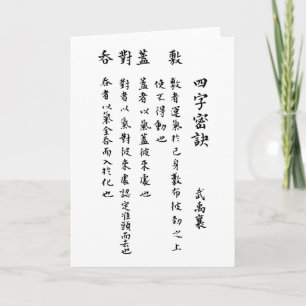 四字密訣
武禹襄
敷
敷者運氣於己身敷布彼勁之上
使不得動也
蓋
蓋者以氣蓋彼來處也
對
對者以氣對彼來處認定準頭而去也
吞
吞者以氣全吞而入於化也